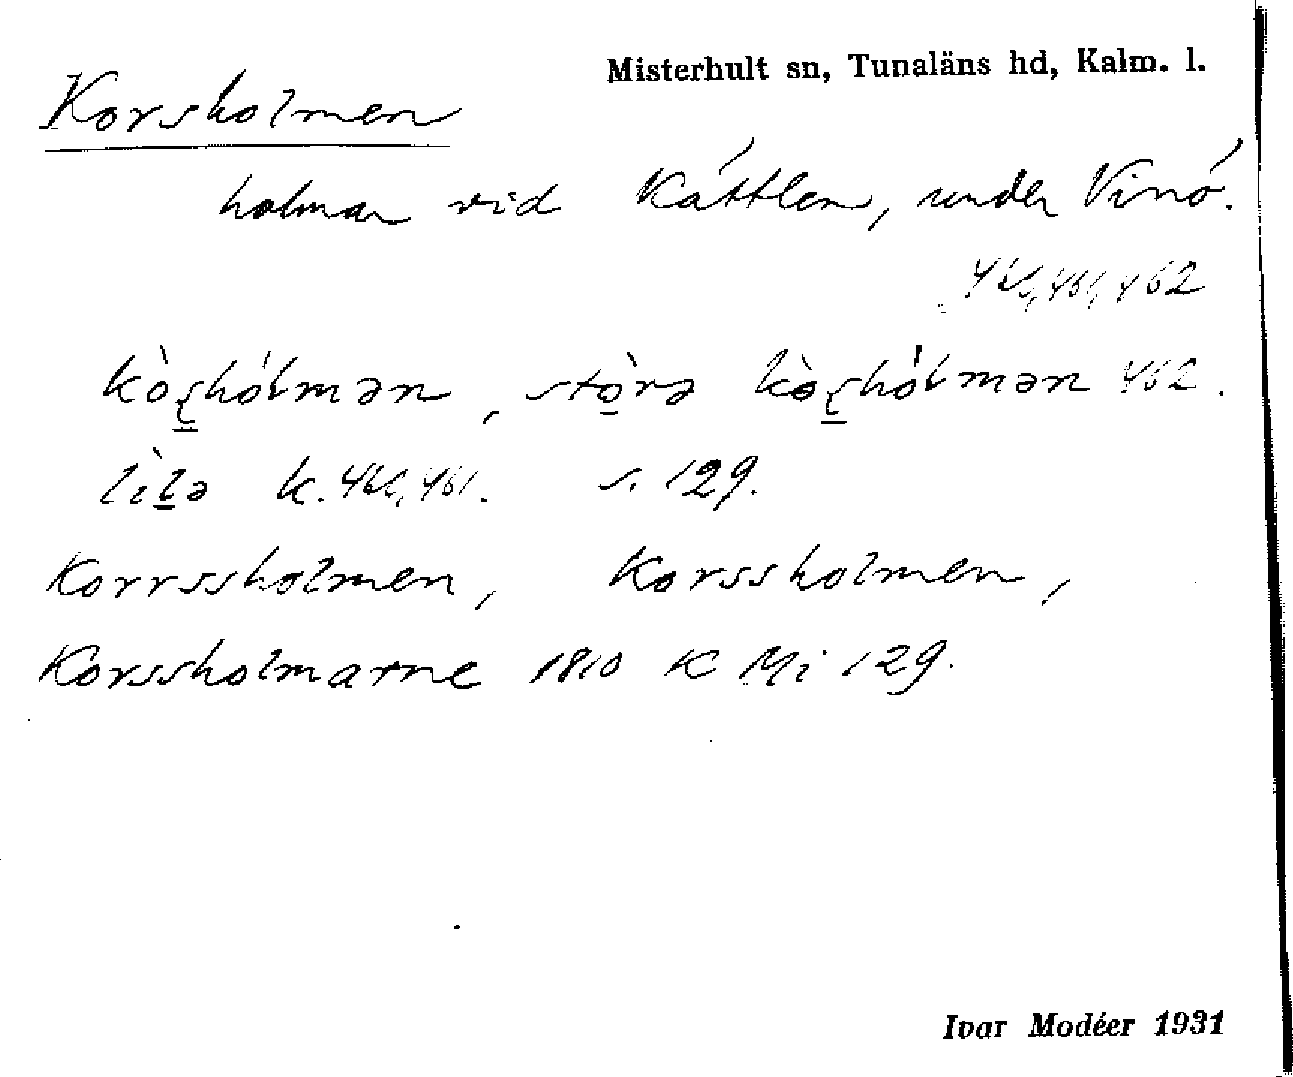 Misterhult sn, Tunaläns hd, Kalm. l.
Korsholmen
holmar vid Káttlen, under Vinó.
460, 461, 462
kòʂhólmən, stòrə kòʂhólmən 462.
lìlə k. 460, 461. s. 129.
Korrssholmen, Korssholmen,
Korssholmarne 1810 K Mi 129.
Ivar Modéer 1931